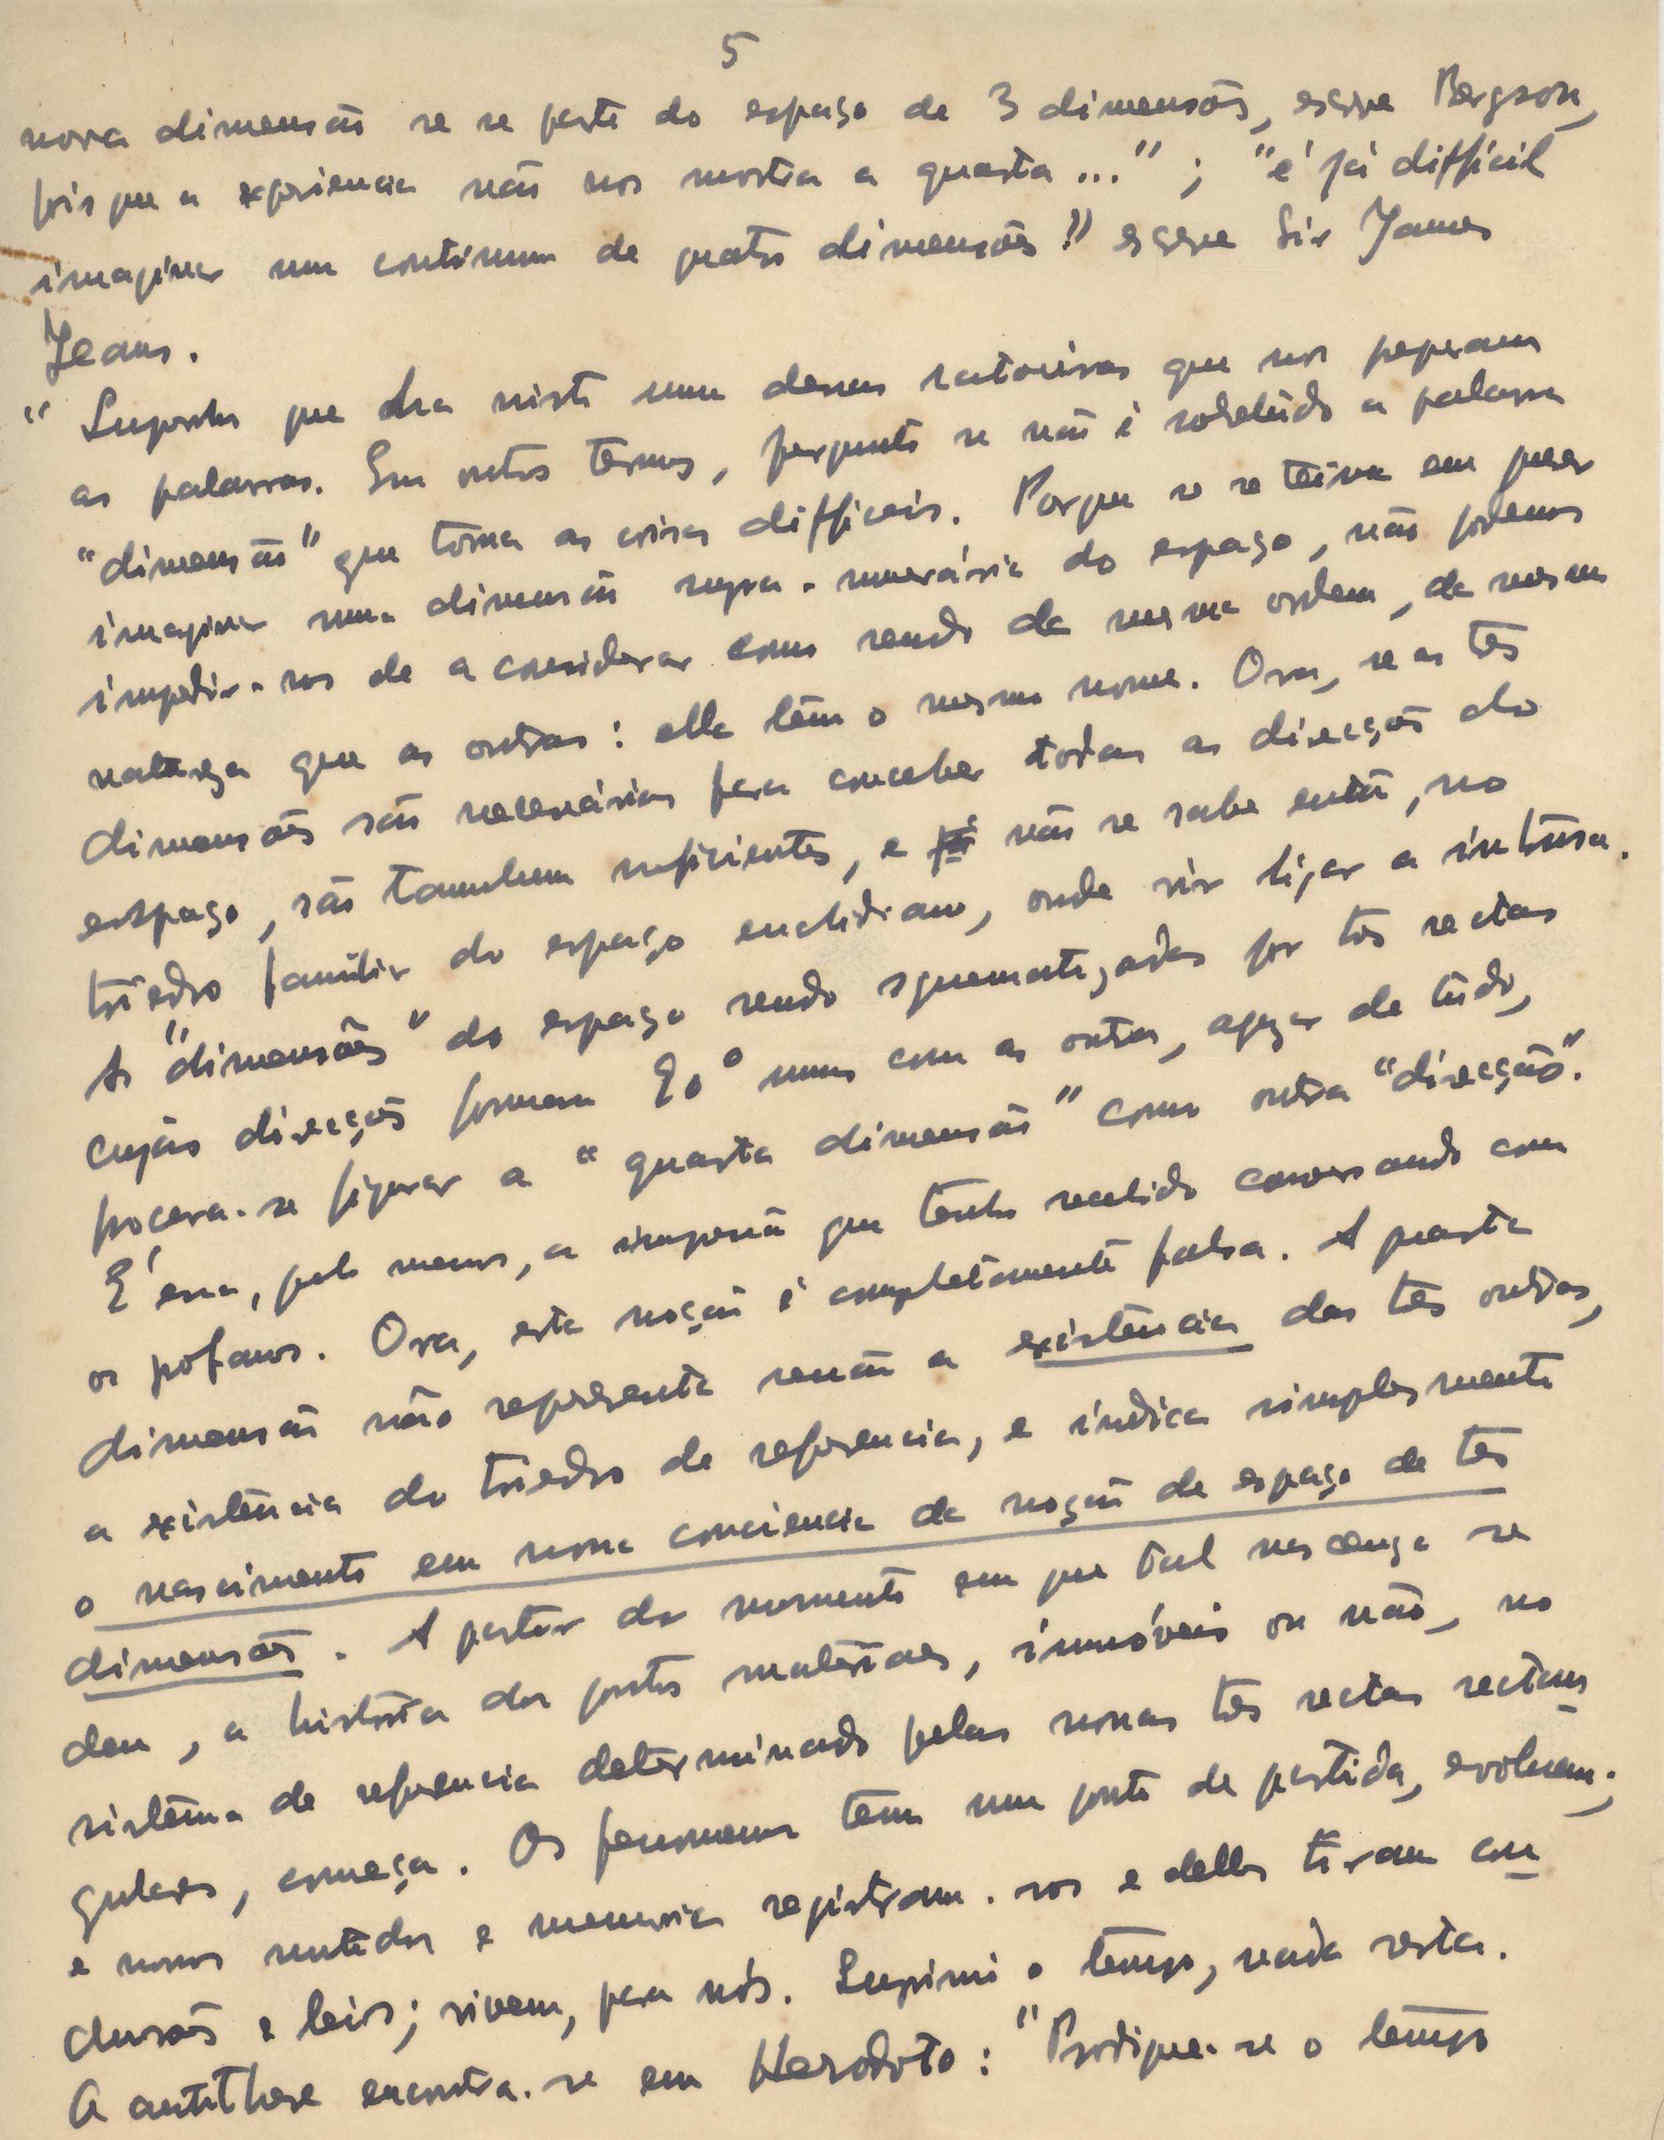 5
nova dimensão se se parte do espaço de 3 dimensões, escreve Bergson,
pois que a experiencia não nos mostra a quarta..." ; "é já difficil
imaginar um continuum de quatro dimensões" escreve Sir James
Jeans.
" Supponho que ha nisto uma dessas ratoeiras que nos preparam
as palavras. Em outros termos, pergunto se não é sobretudo a palavra
"dimensão" que torna as coisas difficeis. Porque se se teima em querer
imaginar uma dimensão supra-numerária do espaço, não podemos
impedir-nos de a considerar como sendo da mesma ordem, da mesma
natureza que as outras: ella têm o mesmo nome. Ora, se as tes
dimensões são necessárias para conceber todas as direcções do
espaço, são tambem suficientes, e não se sabe então, no
triedro familiar do espaço euclidiano, onde vir ligar a intrusa.
As "dimensões" do espaço sendo squematizadas por tes rectas
cujas direcções formam 90° umas com as outras, apezar de tudo,
procura-se figurar a "quarta dimensão" como outra "direcção".
E' essa, pelo menos, a impressão que tenho recebido conversando com
os profanos. Ora, esta noção é completamente falsa. A quarta
dimensão não representa senão a existência das tes outras,
a existência do triedro de referencia, e indica simplesmente
o nascimento em nossa conciencia da noção de espaço de tes
dimensões. A partir do momento em que tal nascença se
deu, a história dos pontos materiaes, immóveis ou não, no
sistêma de referencia determinado pelas nossas tes rectas rectan
gulares, começa. Os fenomenos têm um ponto de partida, evoluem;
e nossos sentidos e memoria registram-nos e delles tiram con
clusões e leis; vivem, para nós. Suprimi o tempo, nada resta.
A antithese encontra-se em Herodoto: "Prodigue-se o tempo